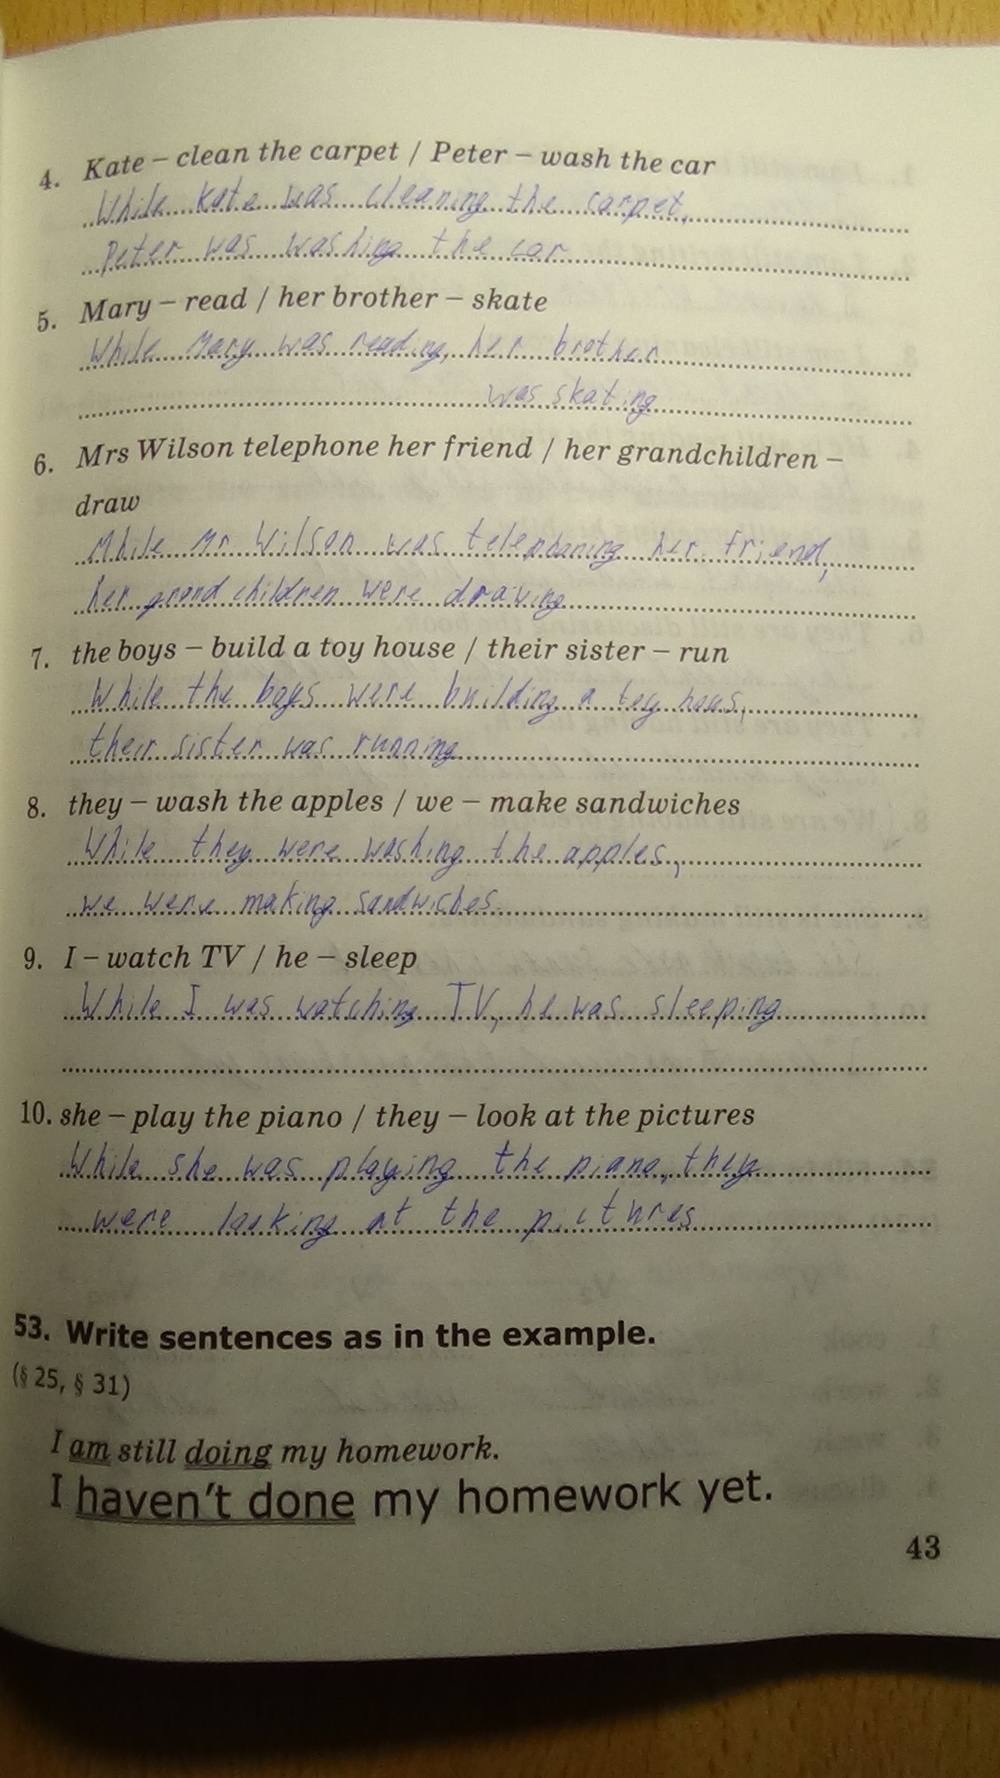 4. Kate – clean the carpet / Peter – wash the car
While Kate was cleaning the carpet,
Peter was washing the car
5. Mary – read / her brother – skate
While Mary was reading, her brother
was skating
6. Mrs Wilson telephone her friend / her grandchildren –
draw
While Mr Wilson was telephoning her friend,
her grand children were drawing
7. the boys – build a toy house / their sister – run
While the boys were building a toy hous,
their sister was running
8. they – wash the apples / we – make sandwiches
While they were washing the apples,
we were making sandwiches.
9. I – watch TV / he – sleep
While I was watching TV, he was sleeping
10. she – play the piano / they – look at the pictures
While she was playing the piano, they
were looking at the pictures
53. Write sentences as in the example.
(§ 25, § 31)
I am still doing my homework.
I haven't done my homework yet.
43